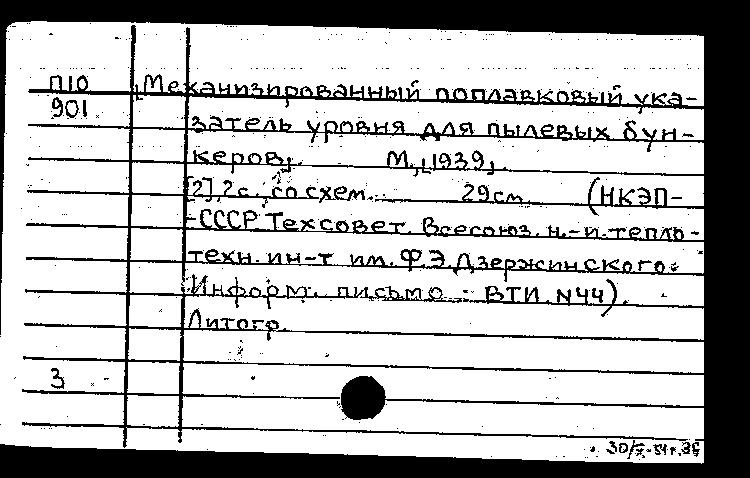 П10 Механизированный поплавковый ука-
901 затель уровня для пылевых бун-
керов. М., 1939,
[2], 2 с., со схем. 29 см. (НКЭП-
-СССР. Техсовет. Всесоюз. н.-и. тепло-
техн. ин-т им. Ф.Э. Дзержинского.
Информ. письмо - ВТИ. N44).
Литогр.
3